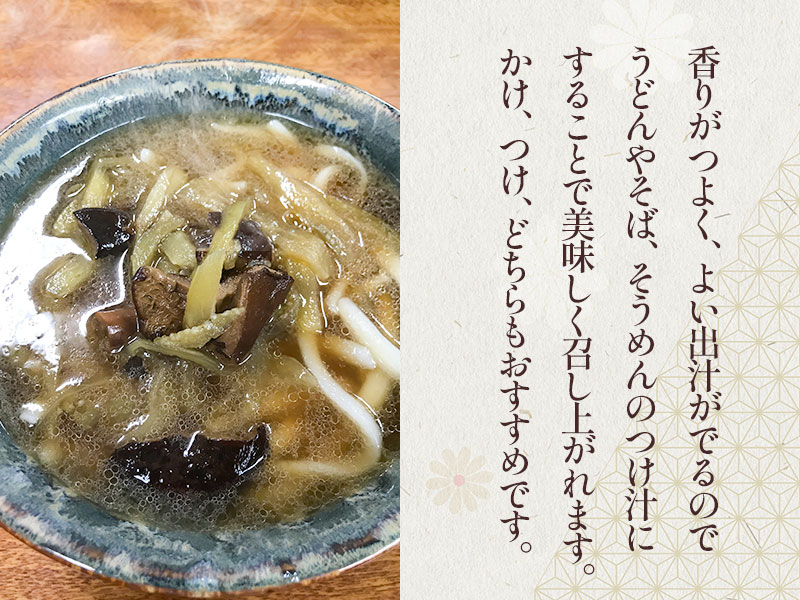 香りがつよく、よい出汁がでるので
うどんやそば、そうめんのつけ汁に
することで美味しく召し上がれます。
かけ、つけ、どちらもおすすめです。